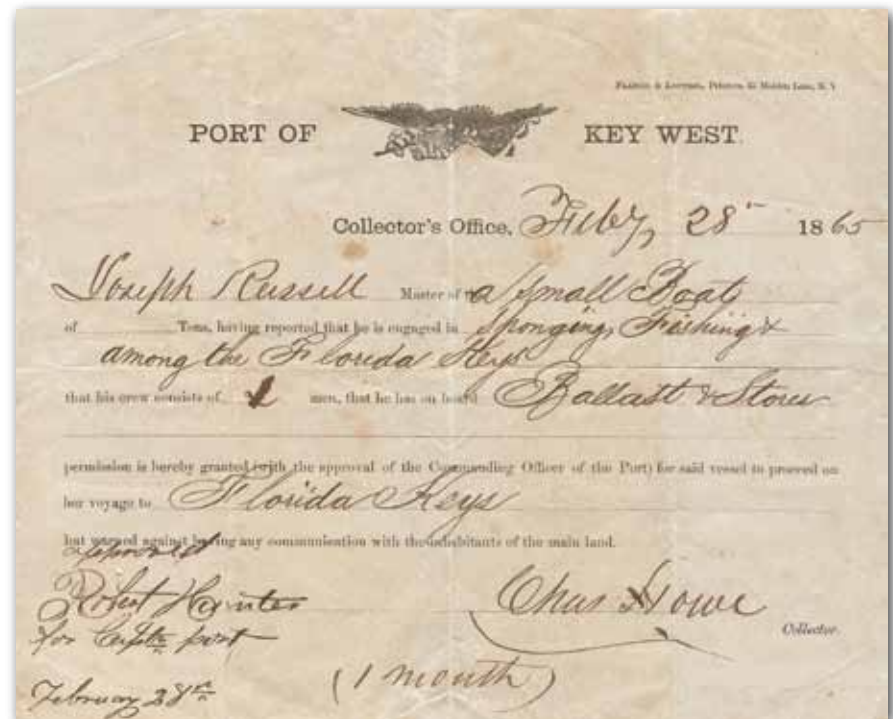 Printers, 45 Maiden Lane, N. Y.
PORT OF KEY WEST.
Collector's Office, Feby, 28" 1865
Joseph Russell Master of a Small Boat
of Tons, having reported that he is engaged in Sponging, Fishing &
among the Florida Keys
that his crew consists of men, that he has on board Ballast & Stores
permission is hereby granted (with the approval of the Commanding Officer of the Port) for said vessel to proceed on
her voyage to Florida Keys
but warned against having any communication with the inhabitants of the main land.
approved
Robert Hunter Chas Howe
for port Collector.
(1 month)
February 28th